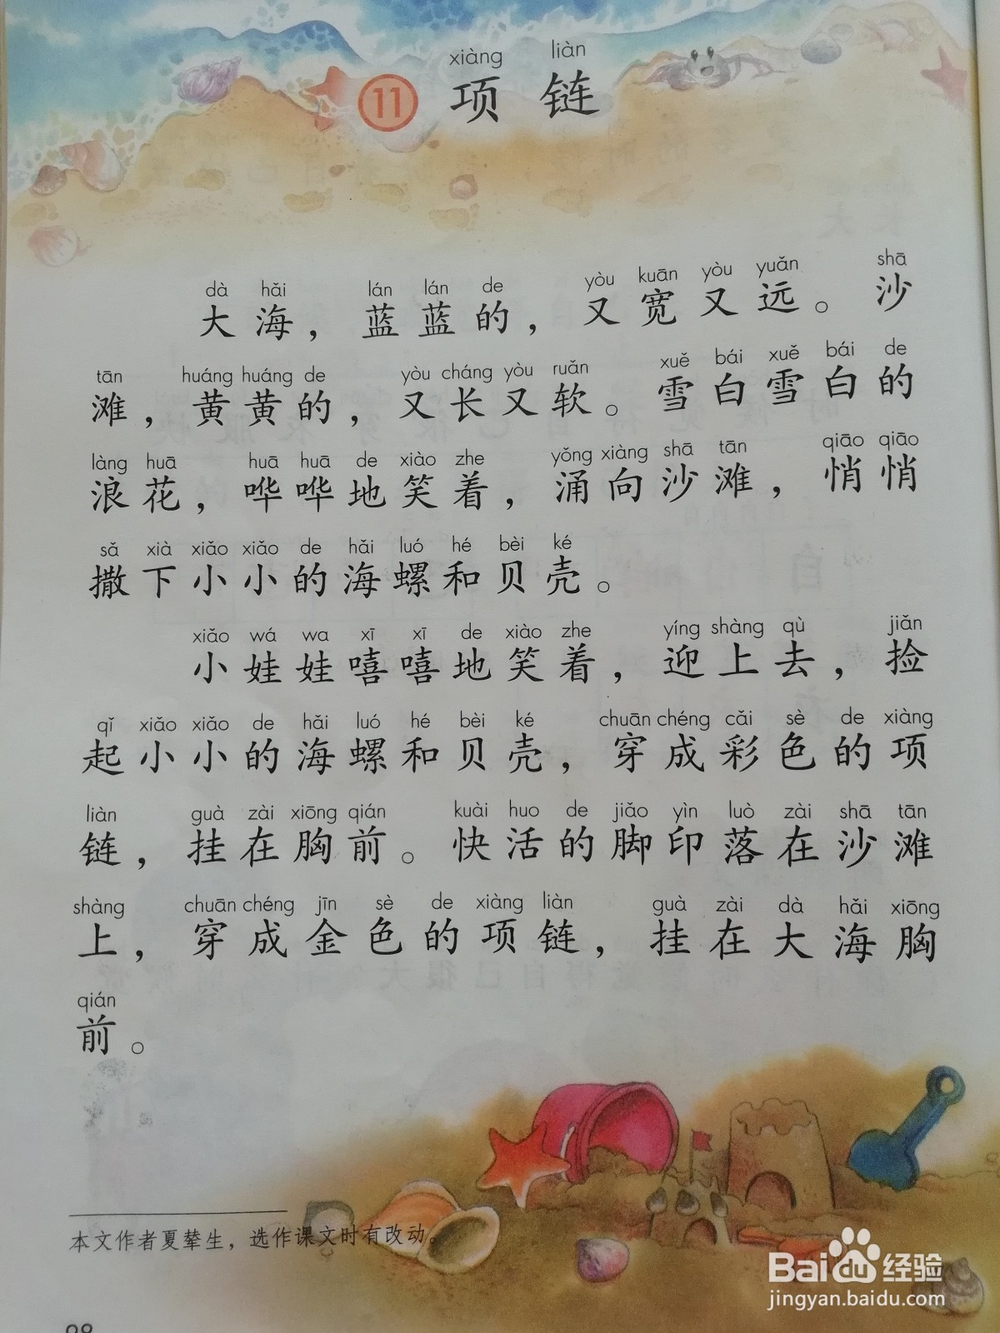 xiàng liàn
11 项链
dà hǎi lán lán de yòu kuān yòu yuǎn shā
大海，蓝蓝的，又宽又远。沙
tān huáng huáng de yòu cháng yòu ruǎn xuě bái xuě bái de
滩，黄黄的，又长又软。雪白雪白的
làng huā huā huā de xiào zhe yǒng xiàng shā tān qiāo qiāo
浪花，哗哗地笑着，涌向沙滩，悄悄
sǎ xià xiǎo xiǎo de hǎi luó hé bèi ké
撒下小小的海螺和贝壳。
xiǎo wá wa xī xī de xiào zhe yíng shàng qù jiǎn
小娃娃嘻嘻地笑着，迎上去，捡
qǐ xiǎo xiǎo de hǎi luó hé bèi ké chuān chéng cǎi sè de xiàng
起小小的海螺和贝壳，穿成彩色的项
liàn guà zài xiōng qián kuài huo de jiǎo yìn luò zài shā tān
链，挂在胸前。快活的脚印落在沙滩
shàng chuān chéng jīn sè de xiàng liàn guà zài dà hǎi xiōng
上，穿成金色的项链，挂在大海胸
qián
前。
本文作者夏辇生，选作课文时有改动。
Baidu经验
jingyan.baidu.com